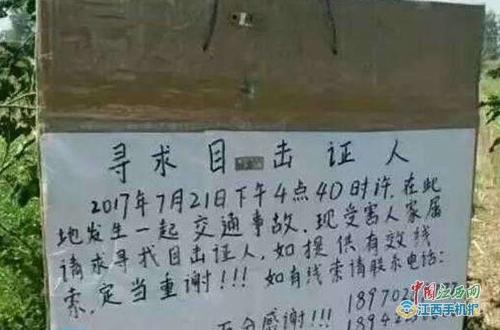 寻求目击证人
2017年7月21日下午4点40时许,在此
地发生一起交通事故,现受害人家属
请求寻找目击证人,如提供有效线
索,定当重谢!!!如有线索请联系电话:
189702
百分感谢!!! 1894
中国江西网
江西手机报